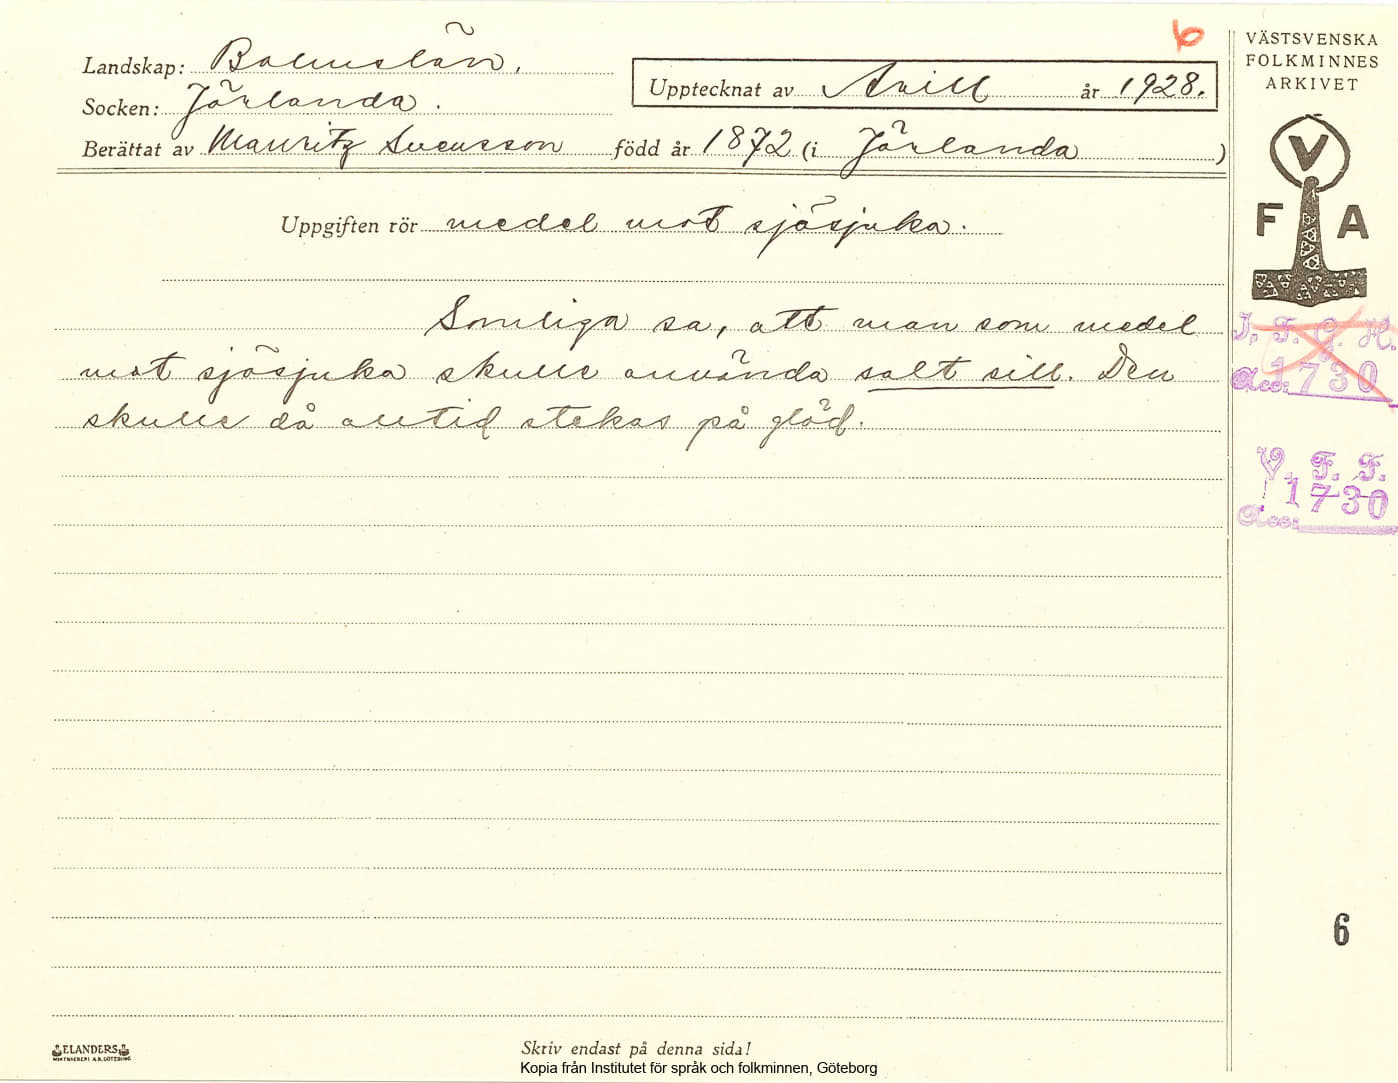 6
Landskap: Bohuslän.
Socken: Jörlanda.
Upptecknat av Arill år 1928.
Berättat av Mauritz Svensson född år 1872 (i Jörlanda )
Uppgiften rör medel mot sjösjuka.
Somliga sa, att man som medel
mot sjösjuka skulle använda salt sill. Den
skulle då alltid stekas på glöd.
VÄSTSVENSKA
FOLKMINNES
ARKIVET
V
F A
I. F. G. H.
Acc: 1730
V. F. F.
1730
Acc:
6
ELANDERS
Skriv endast på denna sida!
Kopia från Institutet för språk och folkminnen, Göteborg